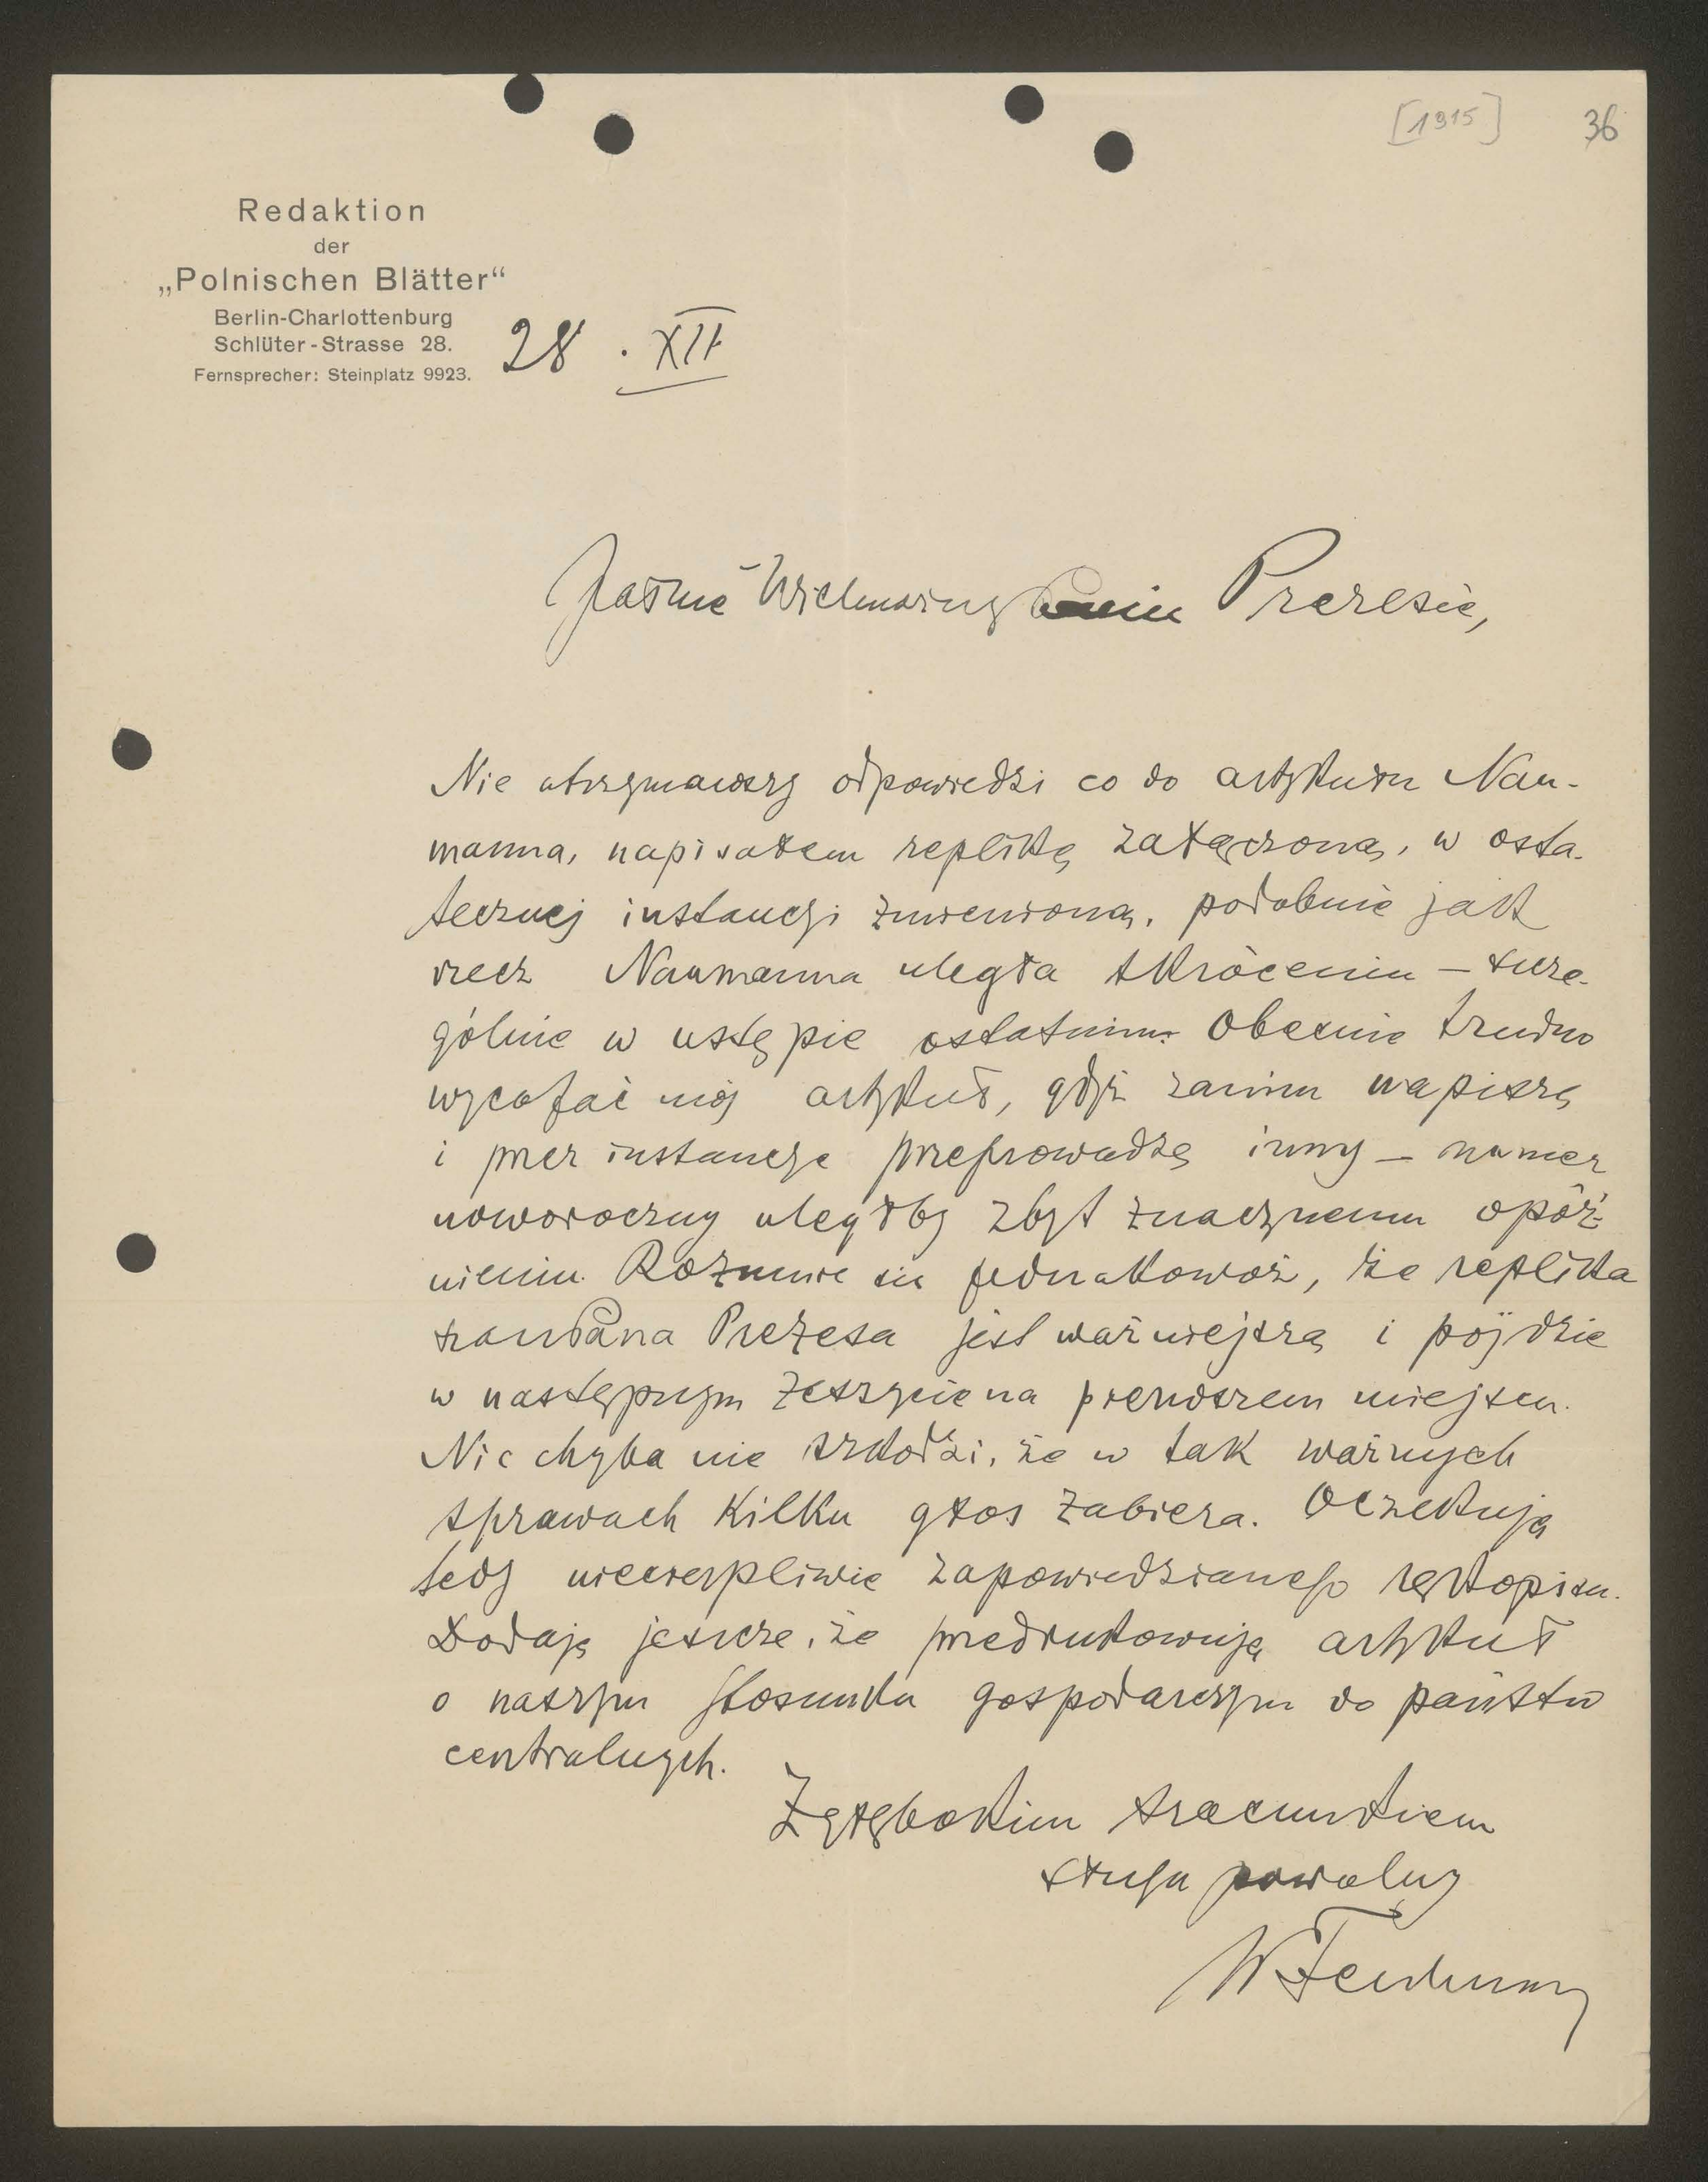 [1915] 36
Redaktion
der
„Polnischen Blätter“
Berlin-Charlottenburg
Schlüter-Strasse 28.
Fernsprecher: Steinplatz 9923.
28. XII
Jaśnie Wielmożny Panie Prezesie,
Nie otrzymawszy odpowiedzi co do artykułu Nau-
manna, napisałem replikę załączoną, w osta-
tecznej instancji zmienioną, podobnie jak
rzecz Naumanna uległa skróceniu – szcze-
gólnie w ustępie ostatnim. Obecnie trudno
wycofać mój artykuł, gdyż zanim napiszę
i przez instancje przeprowadzę inny – numer
noworoczny uległby zbyt znacznemu opóź-
nieniu. Rozumie się jednakowoż, że replika
Pana Prezesa jest ważniejszą i pójdzie
w następnym zeszycie na pierwszem miejscu.
Nic chyba nie szkodzi, że w tak ważnych
sprawach kilku głos zabiera. Oczekuję
tedy niecierpliwie zapowiedzianego rękopisu.
Dodaję jeszcze, że przedrukowuję artykuł
o naszym stosunku gospodarczym do państw
centralnych.
Z głębokim szacunkiem
sługa powolny
W Feldman